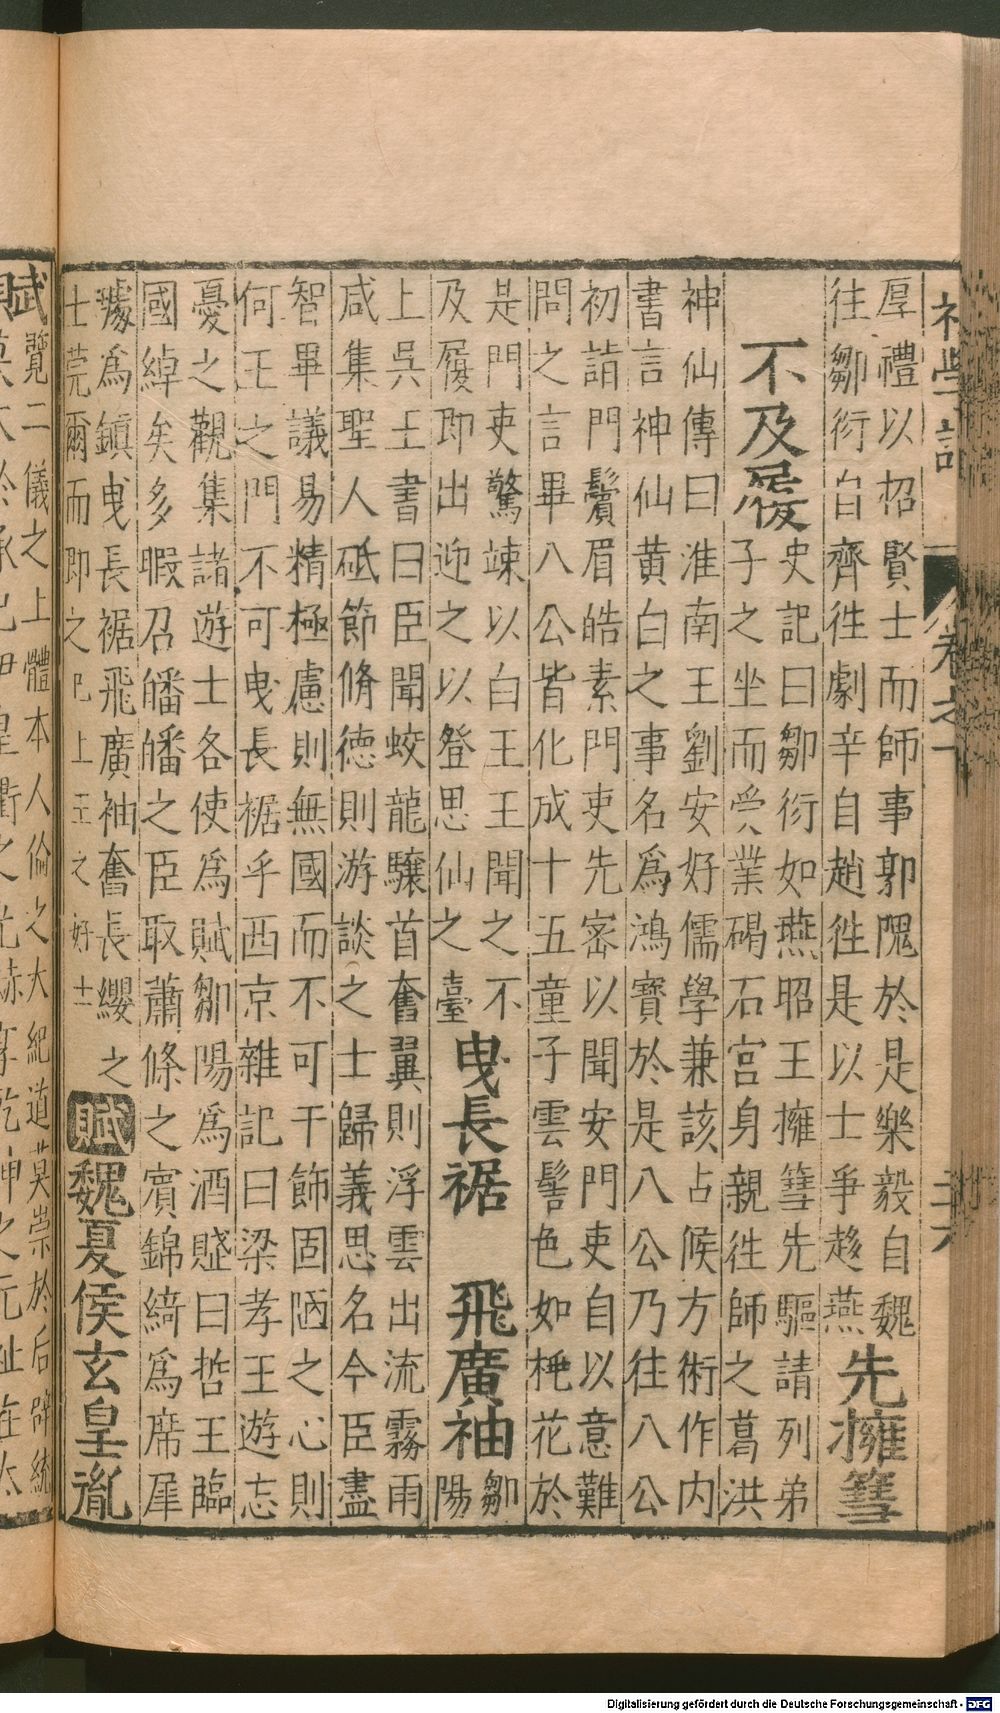 厚禮以招賢士而師事郭隗於是樂毅自魏
往鄒衍自齊徃劇辛自趙徃是以士爭趍燕
先擁篲
史記曰鄒衍如燕昭王擁篲先驅請列弟
子之坐而受業碣石宮身親徃師之葛洪
不及屐
神仙傳曰淮南王劉安好儒學兼該占候方術作内
書言神仙黄白之事名爲鴻寶於是八公乃往八公
初詣門鬢眉皓素門吏先宻以聞安門吏自以意難
問之言畢八公皆化成十五童子雲髻色如桃花於
是門吏驚竦以白王王聞之不
及履即出迎之以登思仙之臺
曳長裾
飛廣袖
鄒
陽
上吳王書曰臣聞蛟龍驤首奮翼則浮雲出流霧雨
咸集聖人砥節脩德則游談之士歸義思名今臣盡
智畢議易精極慮則無國而不可干飾固陋之心則
何王之門不可曳長裾乎西京雜記曰梁孝王遊忘
憂之觀集諸遊士各使爲賦鄒陽爲酒賦曰哲王臨
國綽矣多暇召皤皤之臣取蕭條之賓錦綺爲席犀
璩爲鎮曳長裾飛廣袖奮長纓之
士莞爾而即之
上王之好士
賦
魏夏侯玄皇胤
賦
覽二儀之上體本人倫之大紀道莫崇於后辟統